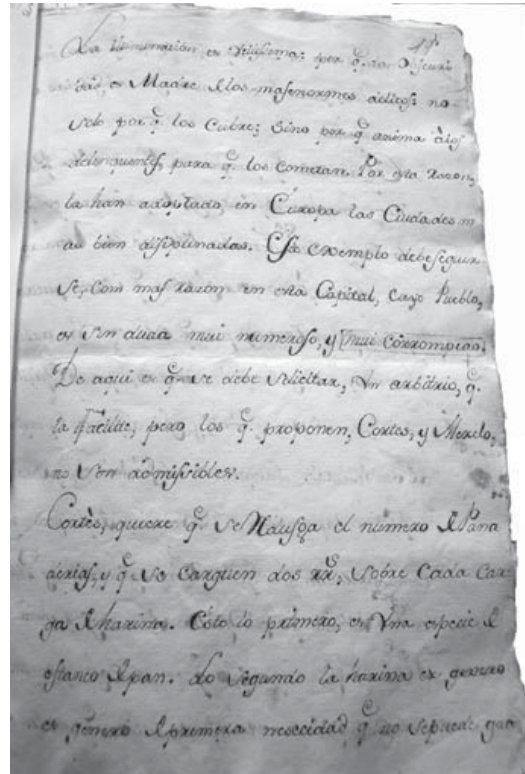 La Iluminacion es utilisima: por q.e la Obscuri
dad es Madre de los mas enormes delitos: no
solo por q.e los Cubre; Sino por q.e anima à los
delinquentes, para q.e los cometan. Por esta razon,
la han adoptado, en Europa las Ciudades m
as bien disiplinadas. Este exemplo debe seguir
se, con mas razon en esta Capital, cuyo Pueblo,
es sin duda mui numeroso, y mui corrompido.
De aqui es q.e se debe solicitar, un arbitrio, q.e
la facilite, pero los q.e proponen, Cortes, y Merelo,
no son admisibles.
Cortès, quiere q.e se Redusga el número de Pana
derias, y q.e se carguen dos rr.s, sobre Cada Car
ga de harina. Esto lo primero, es Vna especie de
estanco de pan. Lo segundo la harina es genero
es género de primera nescecidad q.e no se puede gua